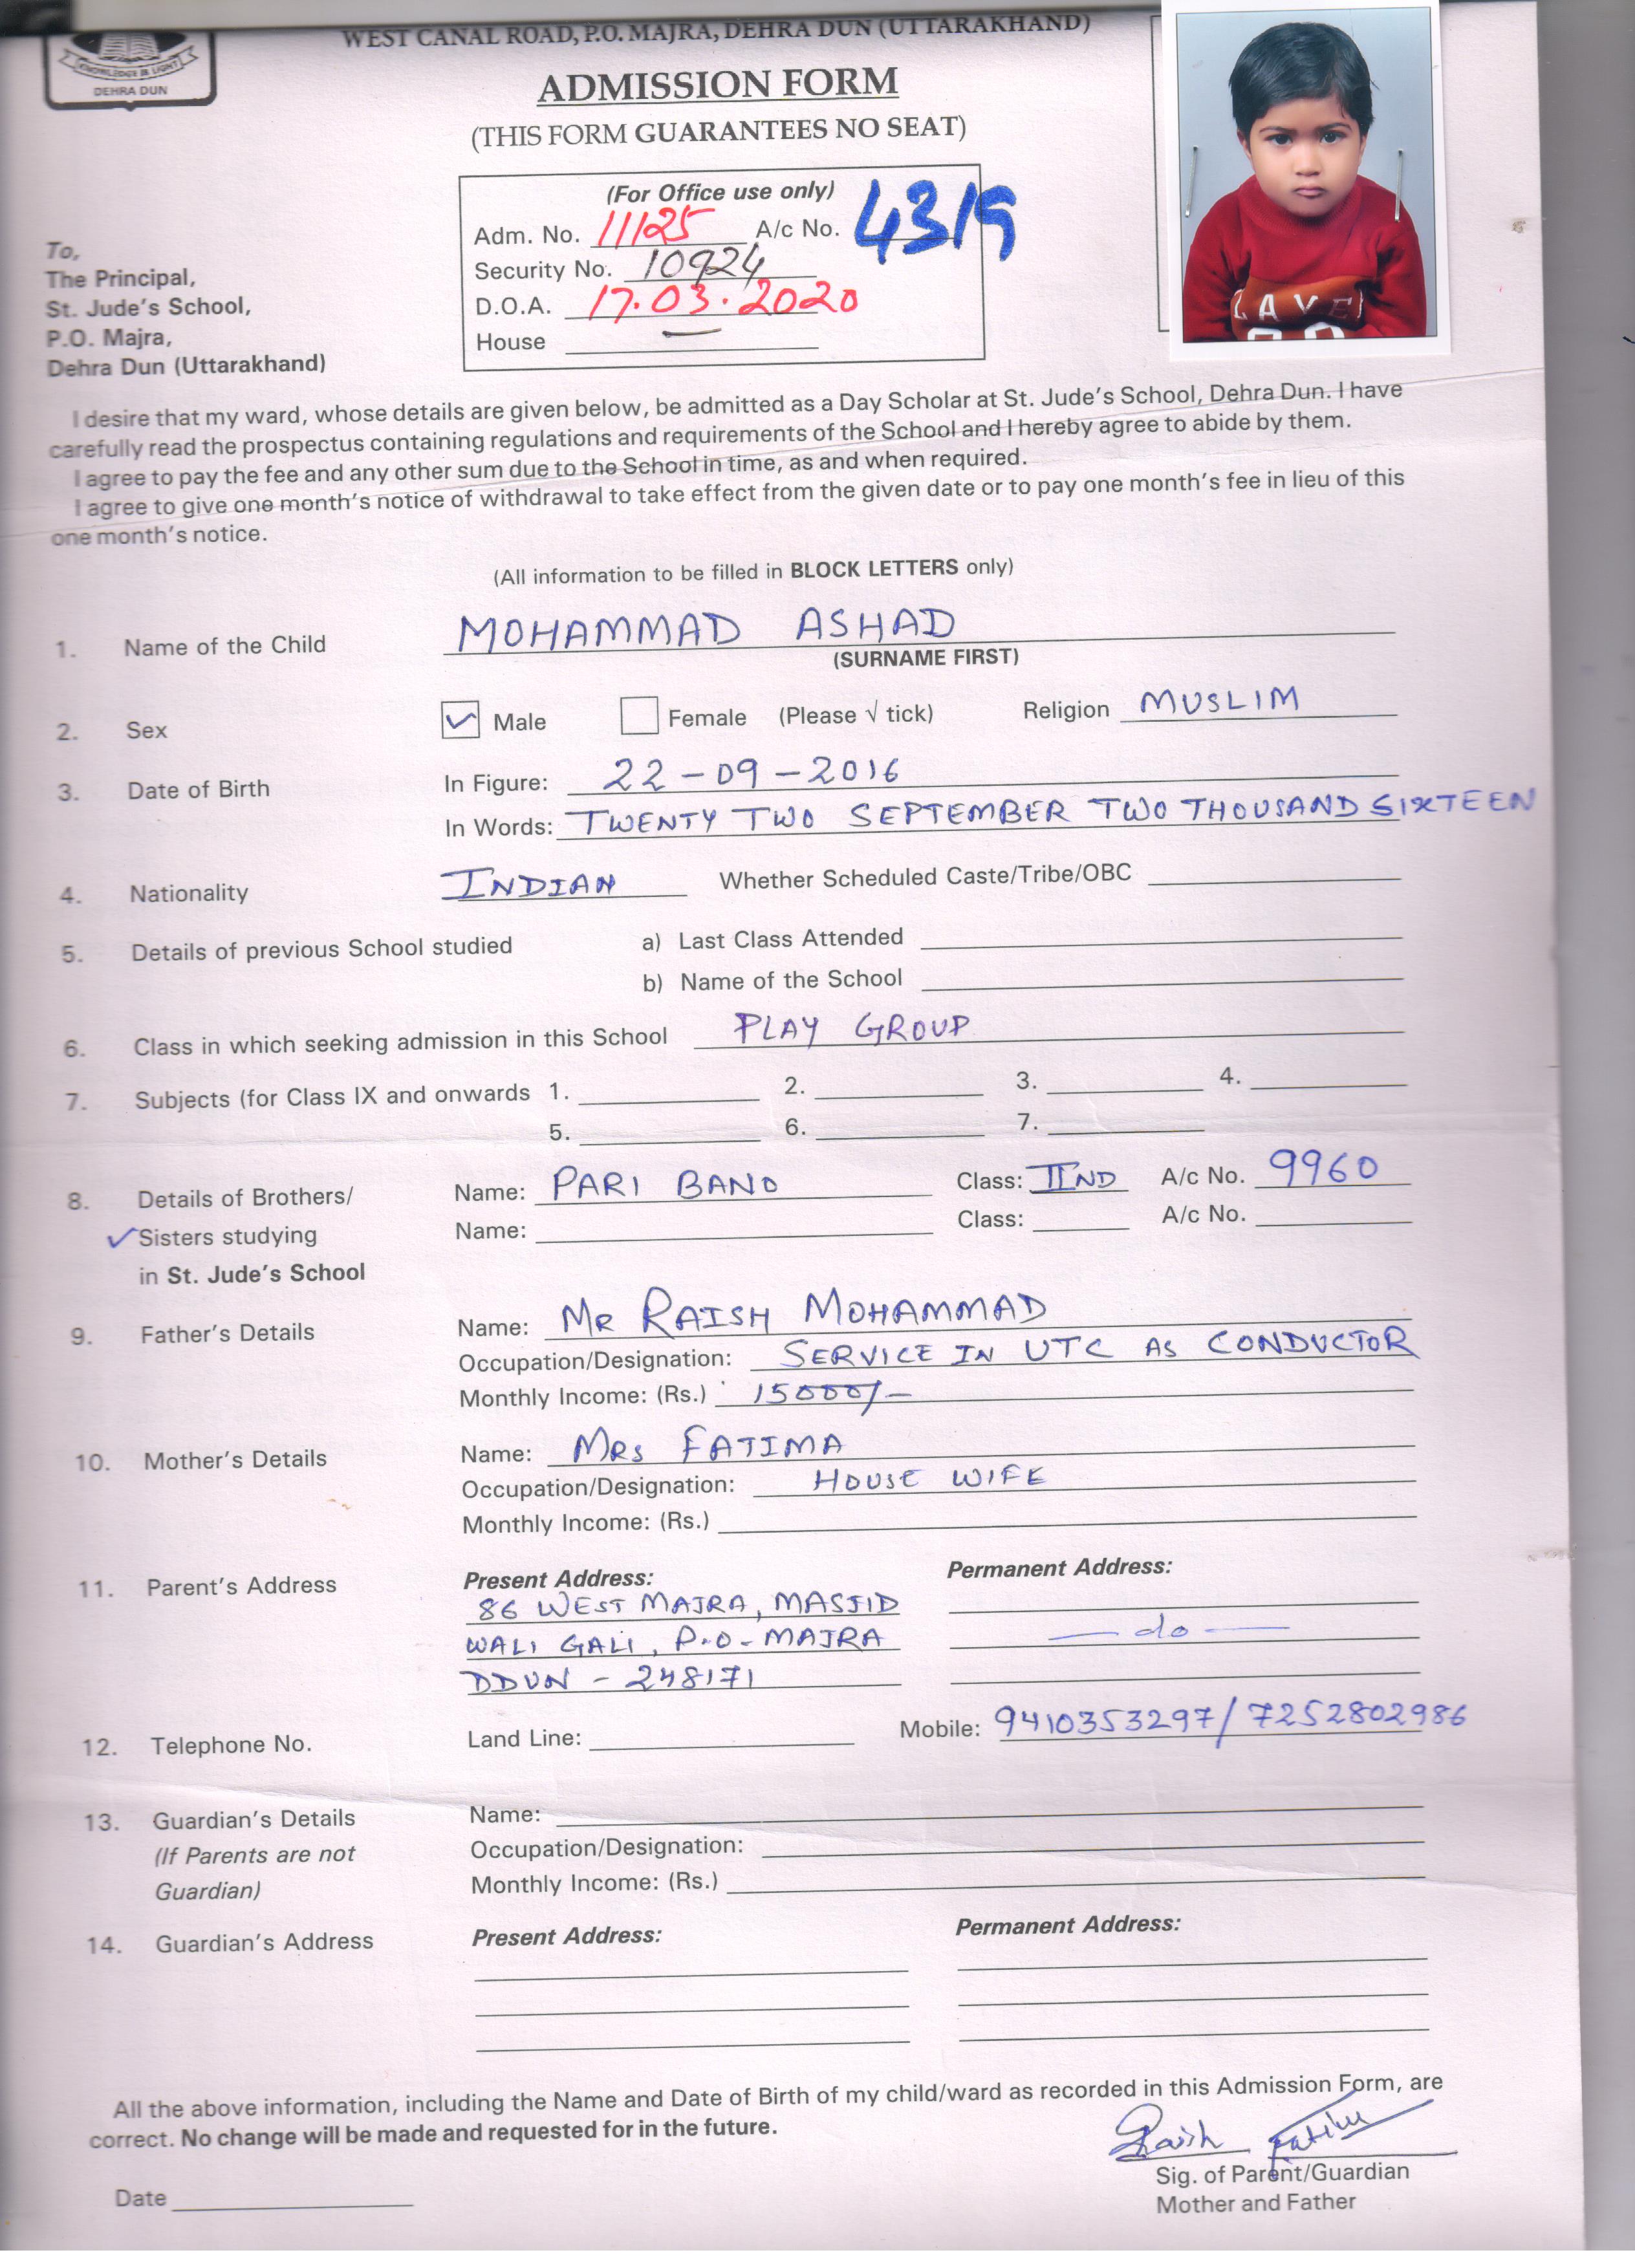 WEST CANAL ROAD, P.O. MAJRA, DEHRA DUN (UTTARAKHAND)
KNOWLEDGE IS LIGHT
DEHRA DUN
ADMISSION FORM
(THIS FORM GUARANTEES NO SEAT)
(For Office use only)
Adm. No. 11125 A/c No. 4319
Security No. 10924
D.O.A. 17.03.2020
House —
To,
The Principal,
St. Jude's School,
P.O. Majra,
Dehra Dun (Uttarakhand)
I desire that my ward, whose details are given below, be admitted as a Day Scholar at St. Jude's School, Dehra Dun. I have
carefully read the prospectus containing regulations and requirements of the School and I hereby agree to abide by them.
I agree to pay the fee and any other sum due to the School in time, as and when required.
I agree to give one month's notice of withdrawal to take effect from the given date or to pay one month's fee in lieu of this
one month's notice.
(All information to be filled in BLOCK LETTERS only)
1. Name of the Child MOHAMMAD ASHAD
(SURNAME FIRST)
2. Sex ✓ Male Female (Please √ tick) Religion MUSLIM
3. Date of Birth In Figure: 22-09-2016
In Words: TWENTY TWO SEPTEMBER TWO THOUSAND SIXTEEN
4. Nationality INDIAN Whether Scheduled Caste/Tribe/OBC
5. Details of previous School studied a) Last Class Attended
b) Name of the School
6. Class in which seeking admission in this School PLAY GROUP
7. Subjects (for Class IX and onwards 1. 2. 3. 4.
5. 6. 7.
8. Details of Brothers/ Name: PARI BANO Class: IIND A/c No. 9960
✓Sisters studying Name: Class: A/c No.
in St. Jude's School
9. Father's Details Name: MR RAISH MOHAMMAD
Occupation/Designation: SERVICE IN UTC AS CONDUCTOR
Monthly Income: (Rs.) 15000/-
10. Mother's Details Name: MRS FATIMA
Occupation/Designation: HOUSE WIFE
Monthly Income: (Rs.)
11. Parent's Address Present Address: Permanent Address:
86 WEST MAJRA, MASJID
WALI GALI, P.O-MAJRA — do —
DDUN - 248171
12. Telephone No. Land Line: Mobile: 9410353297/7252802986
13. Guardian's Details Name:
(If Parents are not Occupation/Designation:
Guardian) Monthly Income: (Rs.)
14. Guardian's Address Present Address: Permanent Address:
All the above information, including the Name and Date of Birth of my child/ward as recorded in this Admission Form, are
correct. No change will be made and requested for in the future.
Raish Fatima
Sig. of Parent/Guardian
Date Mother and Father